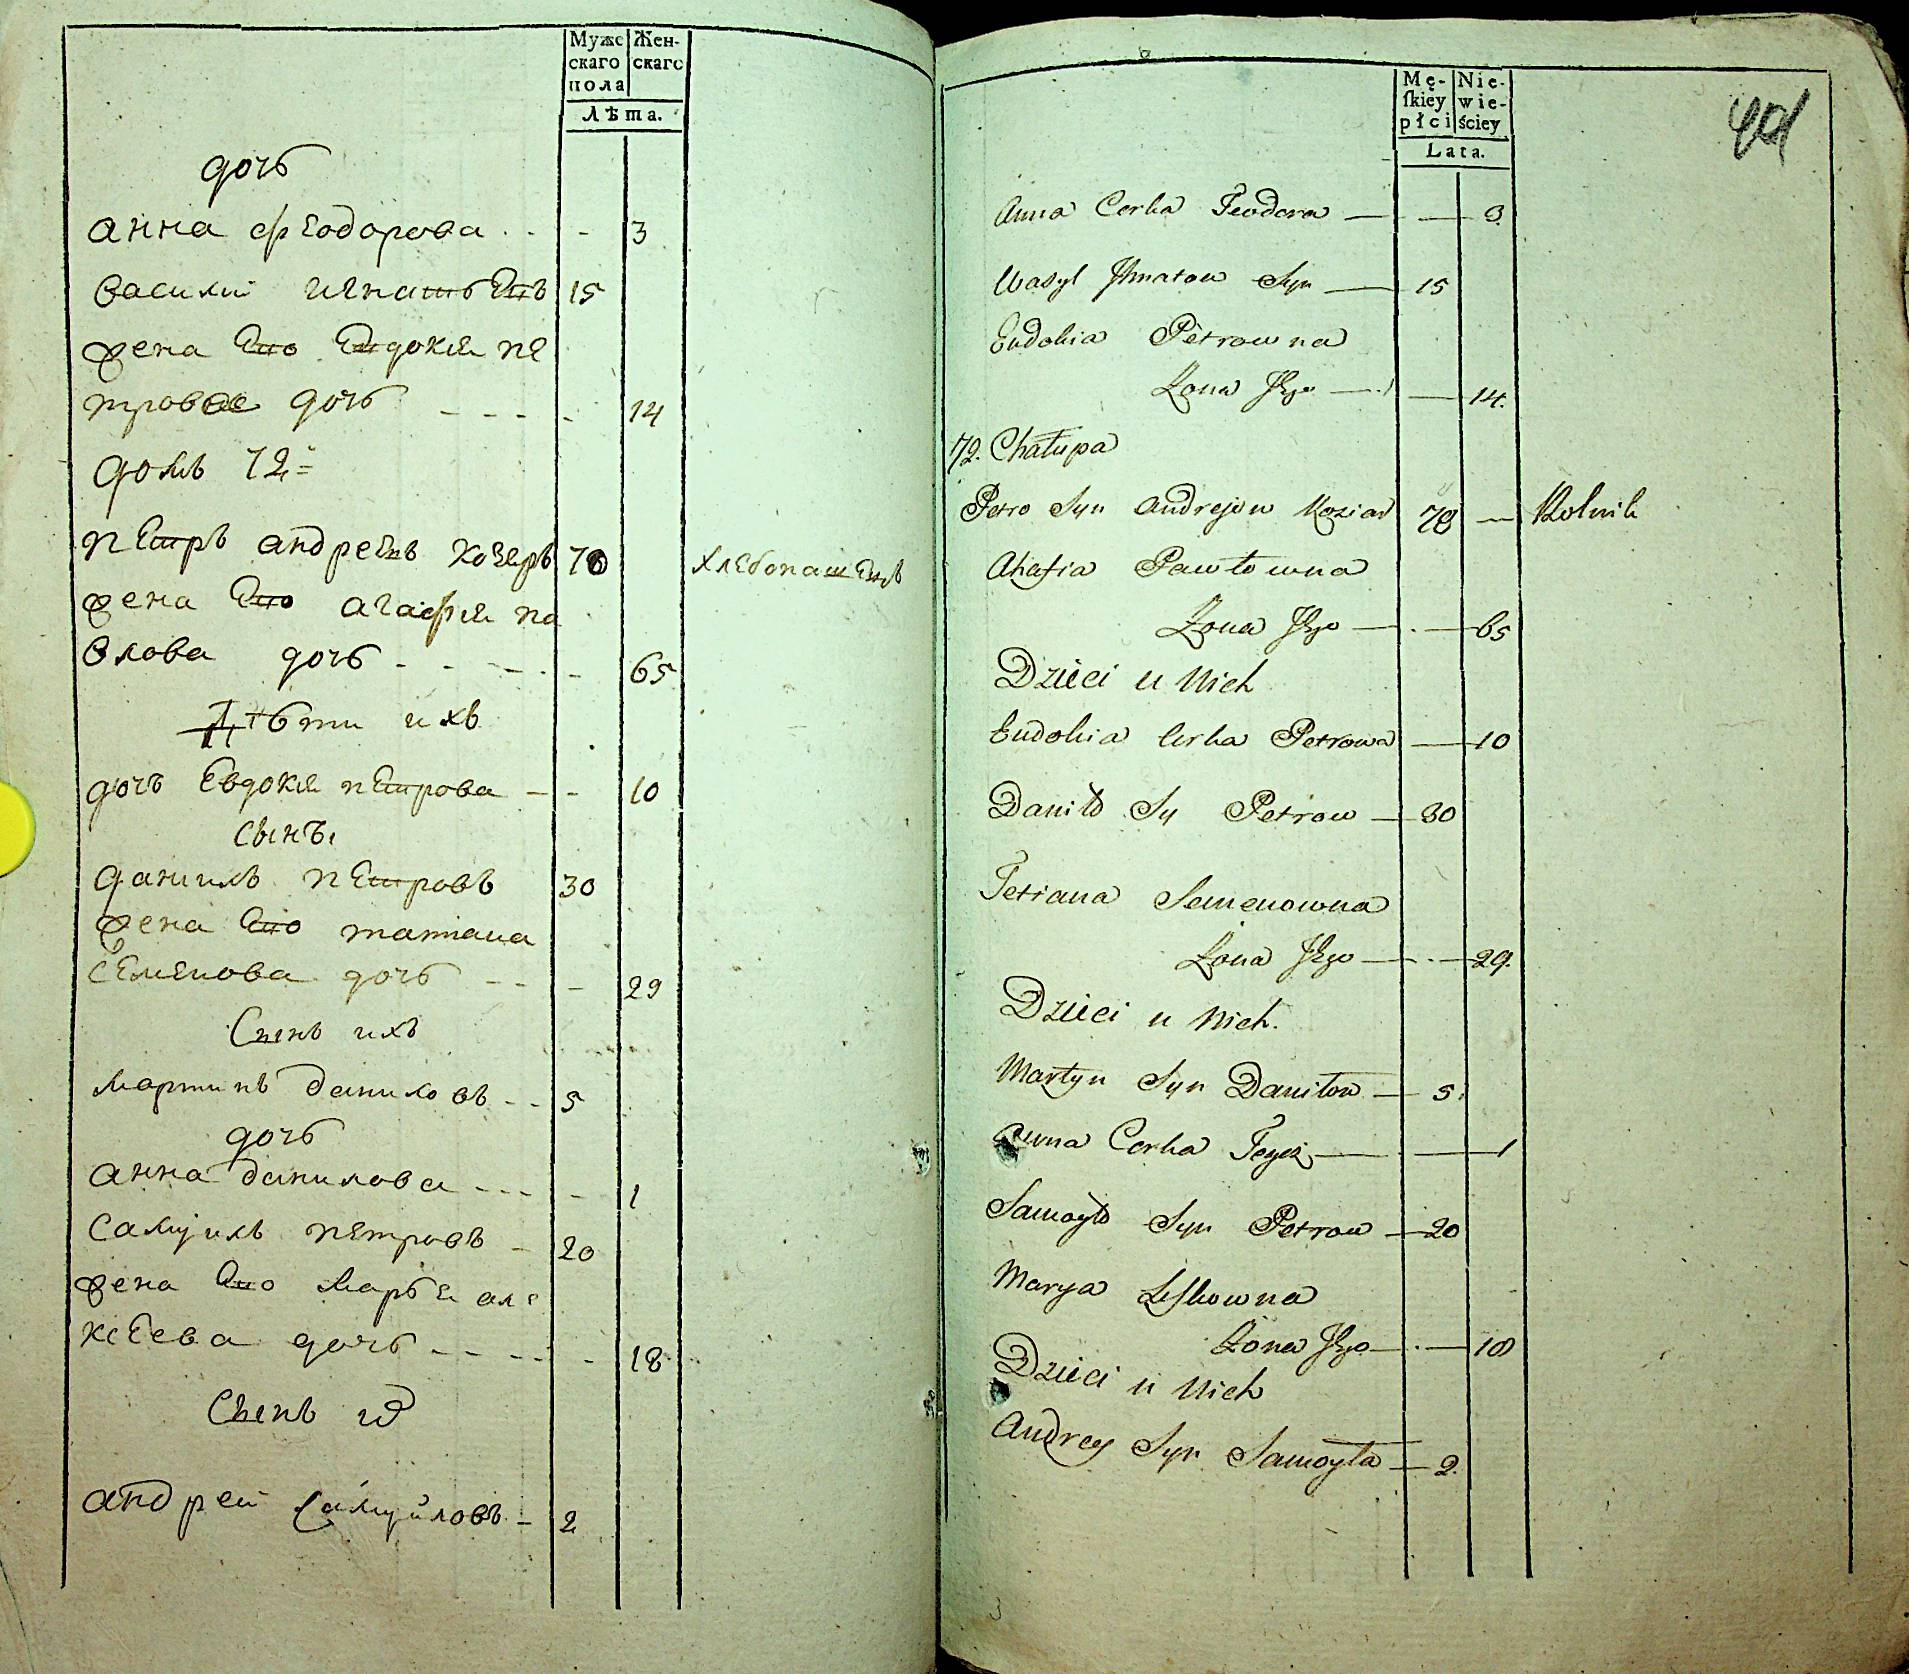 Муже Жен-
скаго скаго
пола
Лѣта.
дочь
анна феодорова - 3
василий игнатьевъ 15
жена его евдокия пе
трова дочь - 14
домъ 72:
петръ андреевъ козяръ 70 хлебопашецъ
жена его агафия па
влова дочь - 65
Дѣти ихъ
дочь Евдокия петрова - 10
сынъ
данилъ петровъ 30
жена его татиана
семенова дочь - 29
Сынъ ихъ
мартинъ даниловъ 5
дочь
анна данилова - 1
самуилъ петровъ - 20
жена его марья але
ксеева дочь - 18
Сынъ их
андрей самуйловъ - 2
Mę- Nie-
ſkiey wie-
płci ściey
Lata.
Anna Corka Teodora — — 3
Wasyl Jhnatow Syn — 15
Eudokia Petrowna
Żona Jego — — 14.
72. Chałupa
Petro Syn Andrejow Koziar 78 — Rolnik
Ahafia Pawłowna
Żona Jego — — 65
Dzieci u Nich
Eudokia Corka Petrowa — 10
Daniło Sy Petrow — 30
Tetiana Semenowna
Żona Jego — — 29.
Dzieci u Nich.
Martyn Syn Daniłow — 5
Anna Corka Tegoż — — 1
Samoyło Syn Petrow — 20
Marya Leſkowna
Żona Jego — — 18
Dzieci u Nich
Andrey Syn Samoyła — 2.